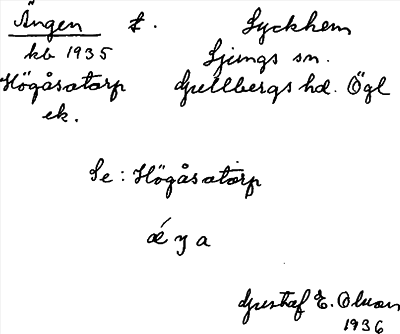 Ängen f. Lyckhem
kb 1935 Ljungs sn.
Högåsatorp Gullbergs hd. Ögl
ek.
Se: Högåsatorp
ǽ ŋ a
Gustaf E. Olsson
1936